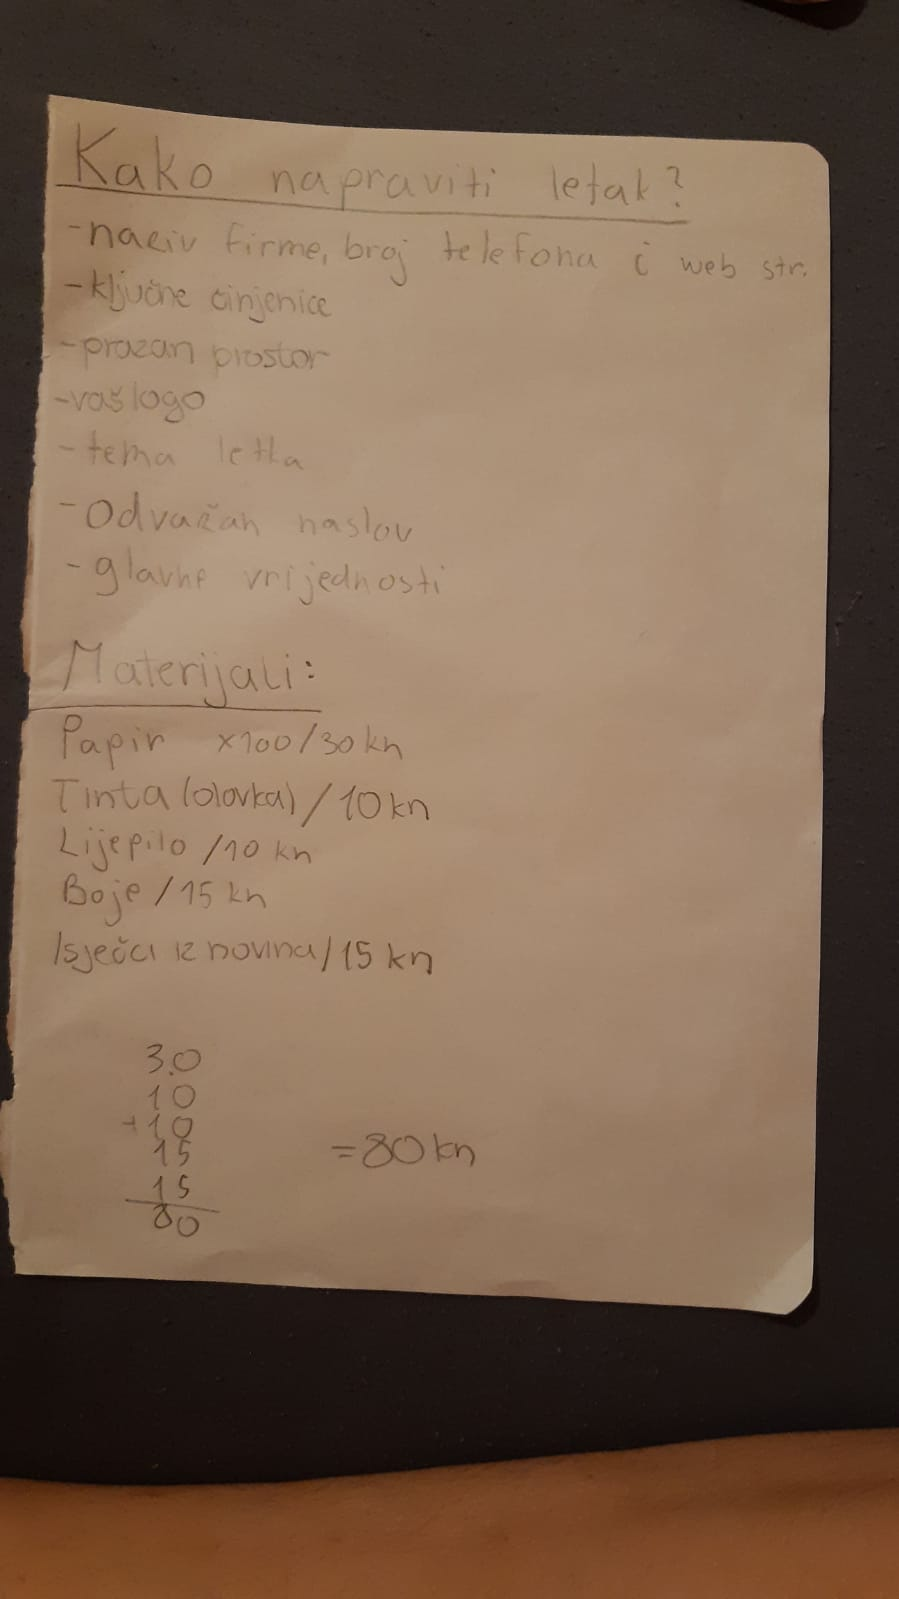 Kako napraviti letak?
-naziv firme, broj telefona i web str.
-ključne činjenice
-prazan prostor
-vaš logo
-tema letka
-Odvažan naslov
-glavne vrijednosti
Materijali:
Papir x100/30kn
Tinta (olovka)/10kn
Lijepilo /10 kn
Boje /15 kn
Isječci iz novina/15 kn
30
10
+10
15 =80kn
15
80